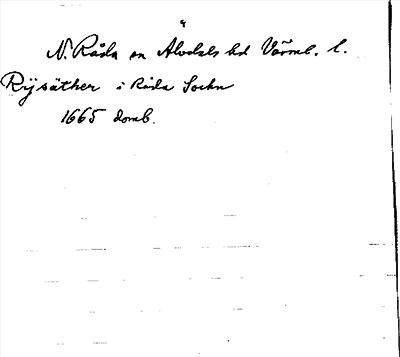 N. Råda sn Älvdals hd Värml. l.
Rÿsäther i Råda Sockn
1665 domb.